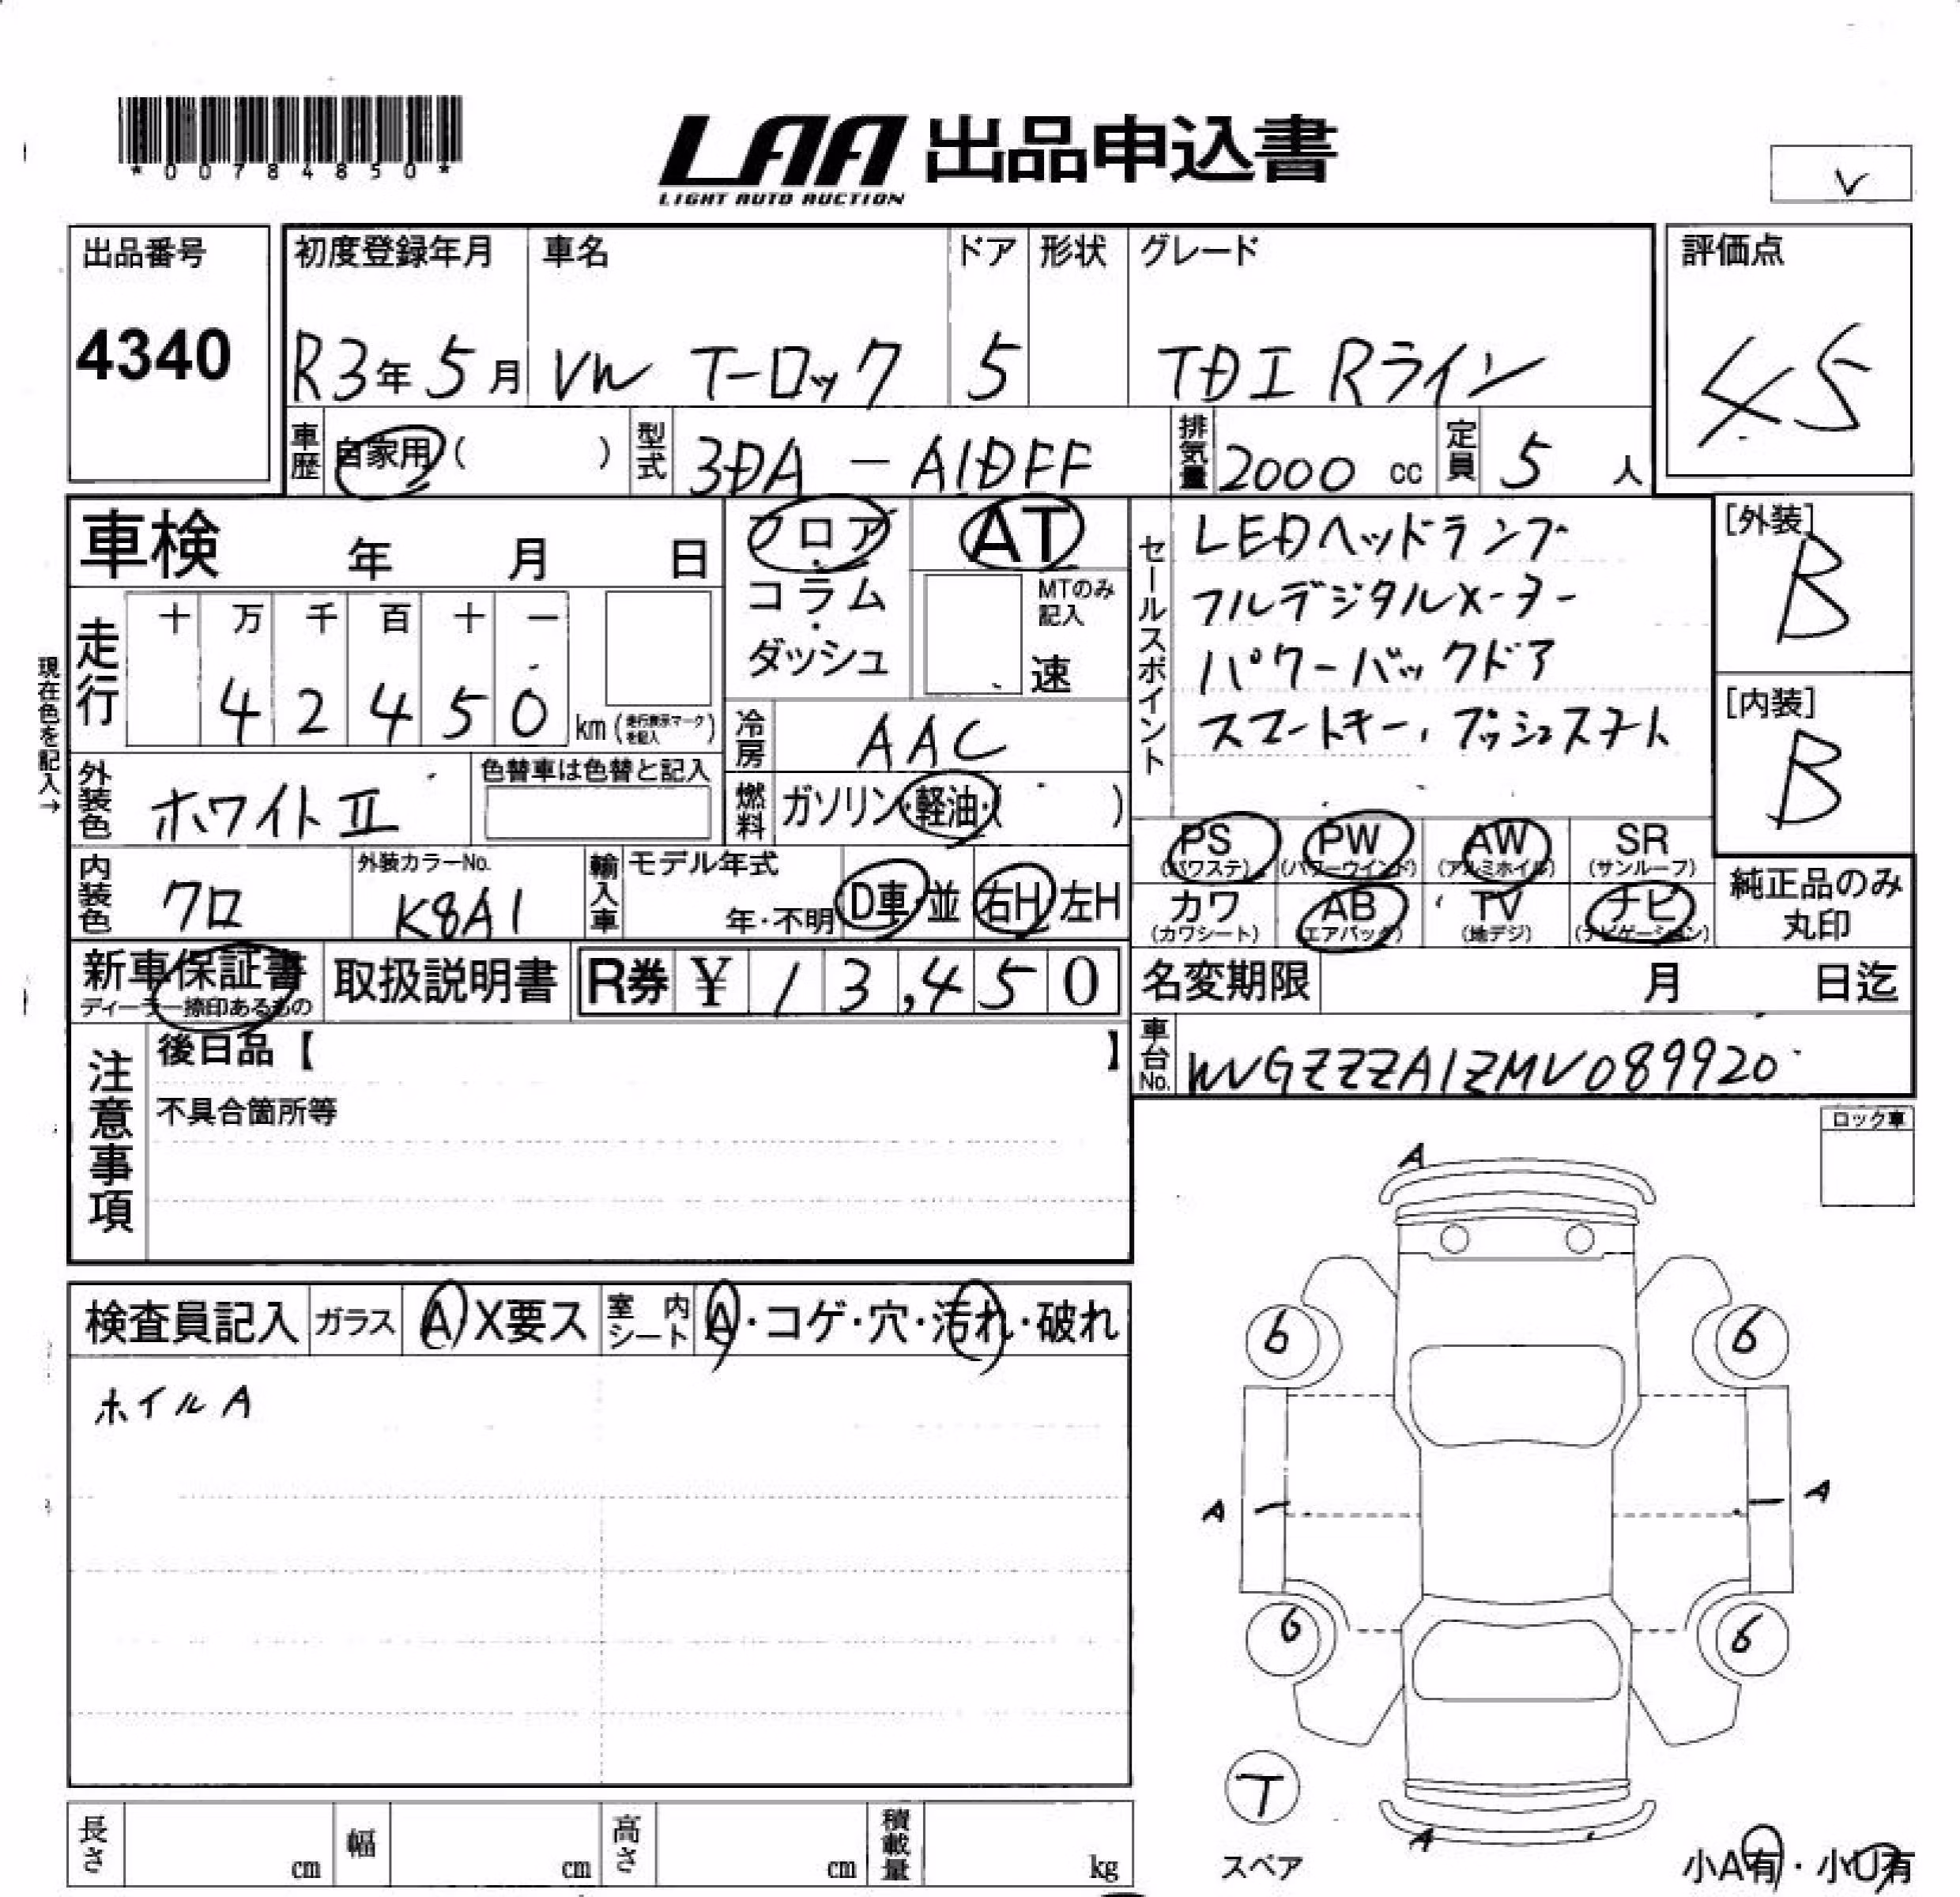 *00784850*
LAA 出品申込書
LIGHT AUTO AUCTION
V
出品番号
4340
初度登録年月 車名 ドア 形状 グレード
R3年 5月 VW T-ロック 5 TDI Rライン
評価点
4.5
車歴 自家用( ) 型式 3DA - A1DFF 排気量 2000 cc 定員 5 人
車検 年 月 日
フロア・コラム・ダッシュ
AT
MTのみ記入
速
セールスポイント
LEDヘッドランプ
フルデジタルメーター
パワーバックドア
スマートキー,プッシュスタート
[外装]
B
[内装]
B
現在色を記入→
走行 十 万 千 百 十 一
4 2 4 5 0 km (走行表示マークを記入)
冷房 AAC
外装色 ホワイトⅡ 色替車は色替と記入
燃料 ガソリン・軽油・( )
PS (パワステ) PW (パワーウインド) AW (アルミホイル) SR (サンルーフ)
カワ (カワシート) AB (エアバック) TV (地デジ) ナビ (ナビゲーション)
純正品のみ丸印
内装色 クロ 外装カラーNo. K8A1 輸入車 モデル年式 年・不明 D車・並 右H 左H
新車保証書 ディーラー捺印あるもの 取扱説明書 R券 ¥ 13,450
名変期限 月 日迄
車台No. WVGZZZA1ZMV089920
注意事項
後日品【 】
不具合箇所等
ロック車
検査員記入 ガラス A X要ス 室内シート A・コゲ・穴・汚れ・破れ
ホイルA
A
6 6
A A
6 6
T
スペア
A
小A有・小U有
長さ cm 幅 cm 高さ cm 積載量 kg